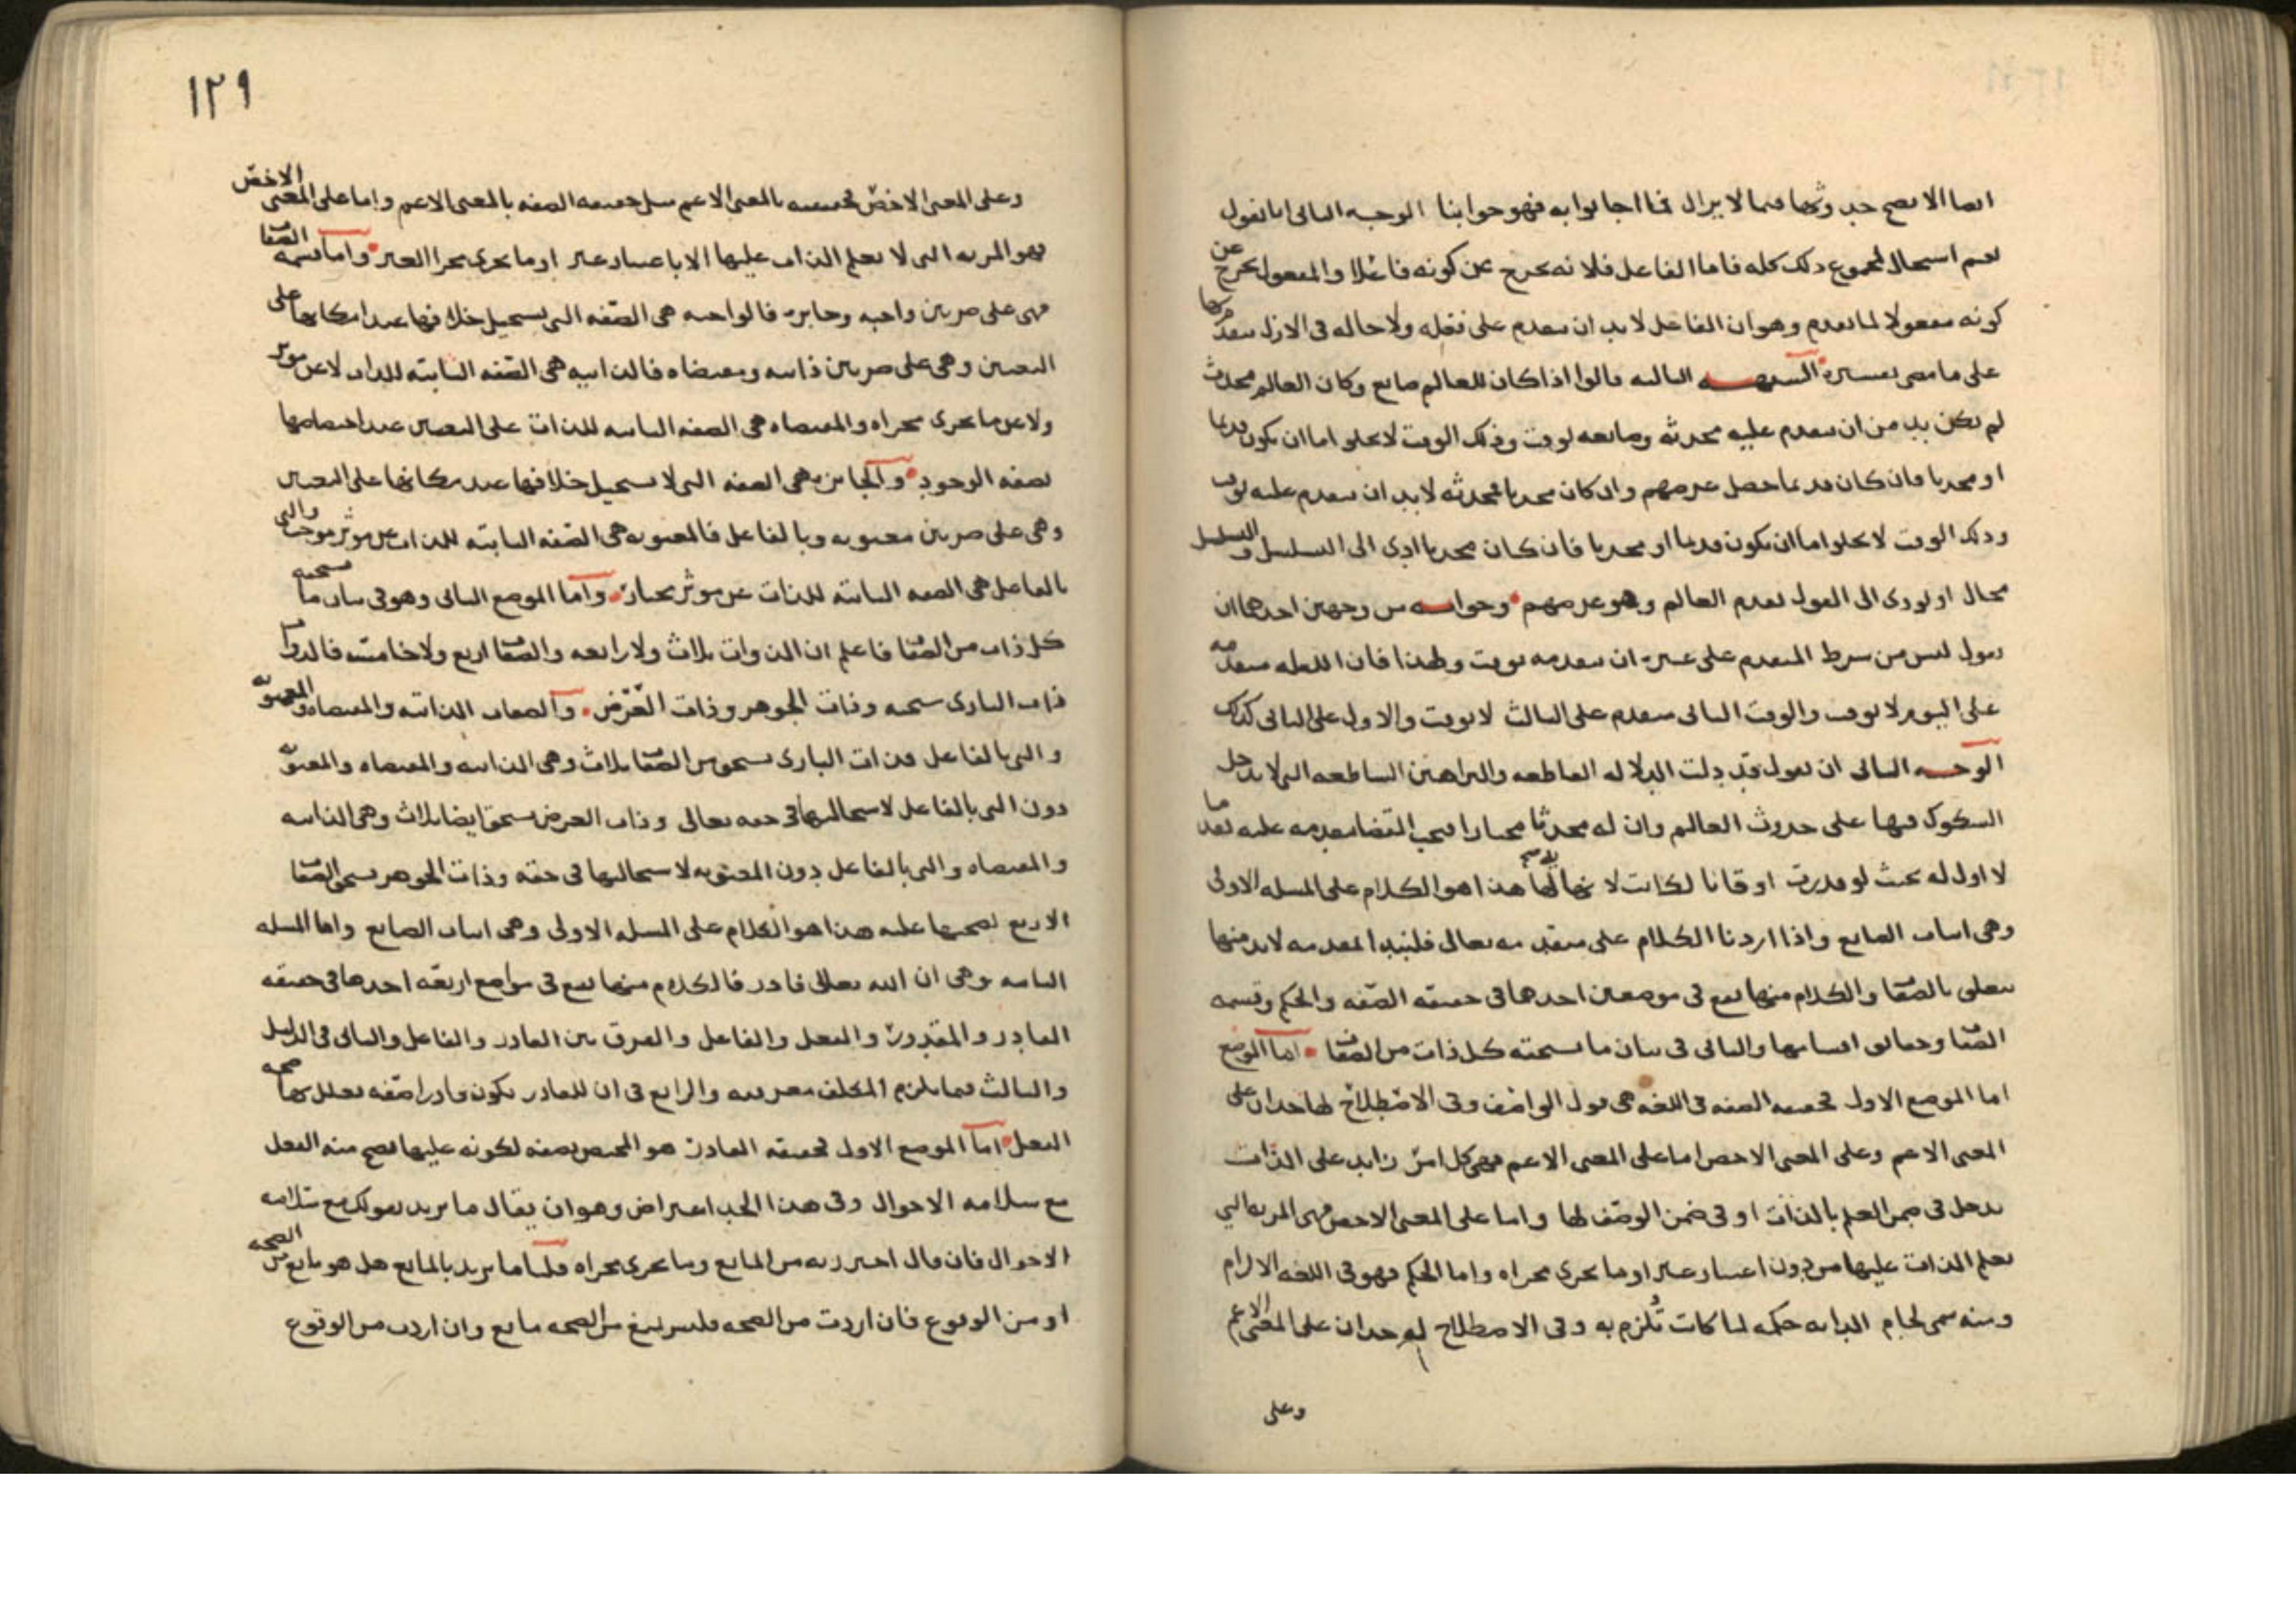 ايضا الا يصح حدوثها فيما لا يزال فما اجابوا به فهو جوابنا الوجه الثاني انا نقول
نعم استحال لمجموع ذلك كله فاما الفاعل فلانه يخرج عن كونه فاعلا والمفعول يخرج عن
كونه مفعولا لما تقدم وهو ان الفاعل لا بد ان يتقدم على فعله ولا حاله في الازل
على ما مضى تفسيره الشبهه الثالثه قالوا اذا كان للعالم صانع وكان العالم محدث
لم يكن بد من ان يتقدم عليه محدثه وصانعه بوقت وذلك الوقت لا يخلو اما ان يكون قديما
او محدثا فان كان قديما حصل غرضهم وان كان محدثا فمحدثه لا بد ان يتقدم عليه بوقت
وذلك الوقت لا يخلو اما ان يكون قديما او محدثا فان كان محدثا ادى الى التسلسل والتسلسل
محال او يودي الى القول بقدم العالم وهو غرضهم وجوابه من وجهين احدهما ان
نقول ليس من شرط المتقدم على غيره ان يتقدمه بوقت ولهذا فان الليله متقدمه
على اليوم لا بوقت والوقت الثاني متقدم على الثالث لا بوقت والاول على الثاني كذلك
الوجه الثاني ان نقول قد دلت الدلاله القاطعه والبراهين الساطعه التي لا تدخل
الشكوك فيها على حدوث العالم وان له محدثا مختارا فيجب القضا بتقدمه عليه تقدما
لا اول له بحيث لو قدرت اوقاتا لكانت لا نهايه لها هذا هو الكلام على المسله الاولى
وهي اثبات الصانع واذا اردنا الكلام على صفته تعالى فلنبدا بمقدمه لا بد منها
تتعلق بالصفات والكلام منها يقع في موضعين احدهما في حقيقه الصفه والحكم وقسمه
الصفات وحقائق اقسامها والثاني في بيان ما تستحقه كل ذات من الصفات اما الموضع
اما الموضع الاول فحقيقه الصفه في اللغه هي قول الواصف وفي الاصطلاح لها حدان على
المعنى الاعم وعلى المعنى الاخص اما على المعنى الاعم فهي كل امر زايد على الذات
يدخل في ضمن العلم بالذات او في ضمن الوصف لها واما على المعنى الاخص فهي المزيه التي
تعلم الذات عليها من دون اعتبار غير او ما يجري مجراه واما الحكم فهو في اللغه الالزام
ومنه سمي لجام الدابه حكمه لما كانت تلزم به وفي الاصطلاح له حدان على المعنى الاعم
وعلى
١٢٩
وعلى المعنى الاخص فحقيقته بالمعنى الاعم مثل حقيقه الصفه بالمعنى الاعم واما على المعنى الاخص
فهو المزيه التي لا تعلم الذات عليها الا باعتبار غير او ما يجري مجرا الغير واما قسمه الصفات
فهي على ضربين واجبه وجايزه فالواجبه هي الصفه التي يستحيل خلافها عند امكانها على
التعيين وهي على ضربين ذاتيه ومقتضاه فالذاتيه هي الصفه الثابته للذات لا عن موثر
ولا عن ما يجري مجراه والمقتضاه هي الصفه الثابته للذات على التعيين عند اختصاصها
بصفه الوجود والجايزه هي الصفه التي لا يستحيل خلافها عند امكانها على التعيين
وهي على ضربين معنويه وبالفاعل فالمعنويه هي الصفه الثابته للذات عن موثر موجب والتي
بالفاعل هي الصفه الثابته للذات عن موثر مختار واما الموضع الثاني وهو في بيان ما تستحقه
كل ذات من الصفات فاعلم ان الذوات ثلاث ولا رابعه والصفات اربع ولا خامسه فالذوات
ذات الباري سبحنه وذات الجوهر وذات العرض والصفات الذاتيه والمقتضاه والمعنويه
والتي بالفاعل فذات الباري تستحق من الصفات ثلاث وهي الذاتيه والمقتضاه والمعنويه
دون التي بالفاعل لاستحالتها في حقه تعالى وذات العرض تستحق ايضا ثلاث وهي الذاتيه
والمقتضاه والتي بالفاعل دون المعنويه لاستحالتها في حقه وذات الجوهر تستحق الصفات
الاربع لصحتها عليه هذا هو الكلام على المسله الاولى وهي اثبات الصانع واما المسله
الثانيه وهي ان الله تعالى قادر فالكلام منها يقع في مواضع اربعه احدها في حقيقه
القادر والمقدور والفعل والفاعل والفرق بين القادر والفاعل والثاني في الدليل
والثالث فيما يلزم المكلف معرفته والرابع في ان للقادر بكونه قادرا صفه تعلل بها صحه
الفعل اما الموضع الاول فحقيقه القادر هو المختص بصفه لكونه عليها يصح منه الفعل
مع سلامه الاحوال وفي هذا الحد اعتراض وهو ان يقال ما تريد بقولك مع سلامه
الاحوال فان قال احترز به من المانع وما يجري مجراه قلنا ما تريد بالمانع هل هو مانع من الصحه
او من الوقوع فان اردت من الصحه فليس يمنع من الصحه مانع وان اردت من الوقوع